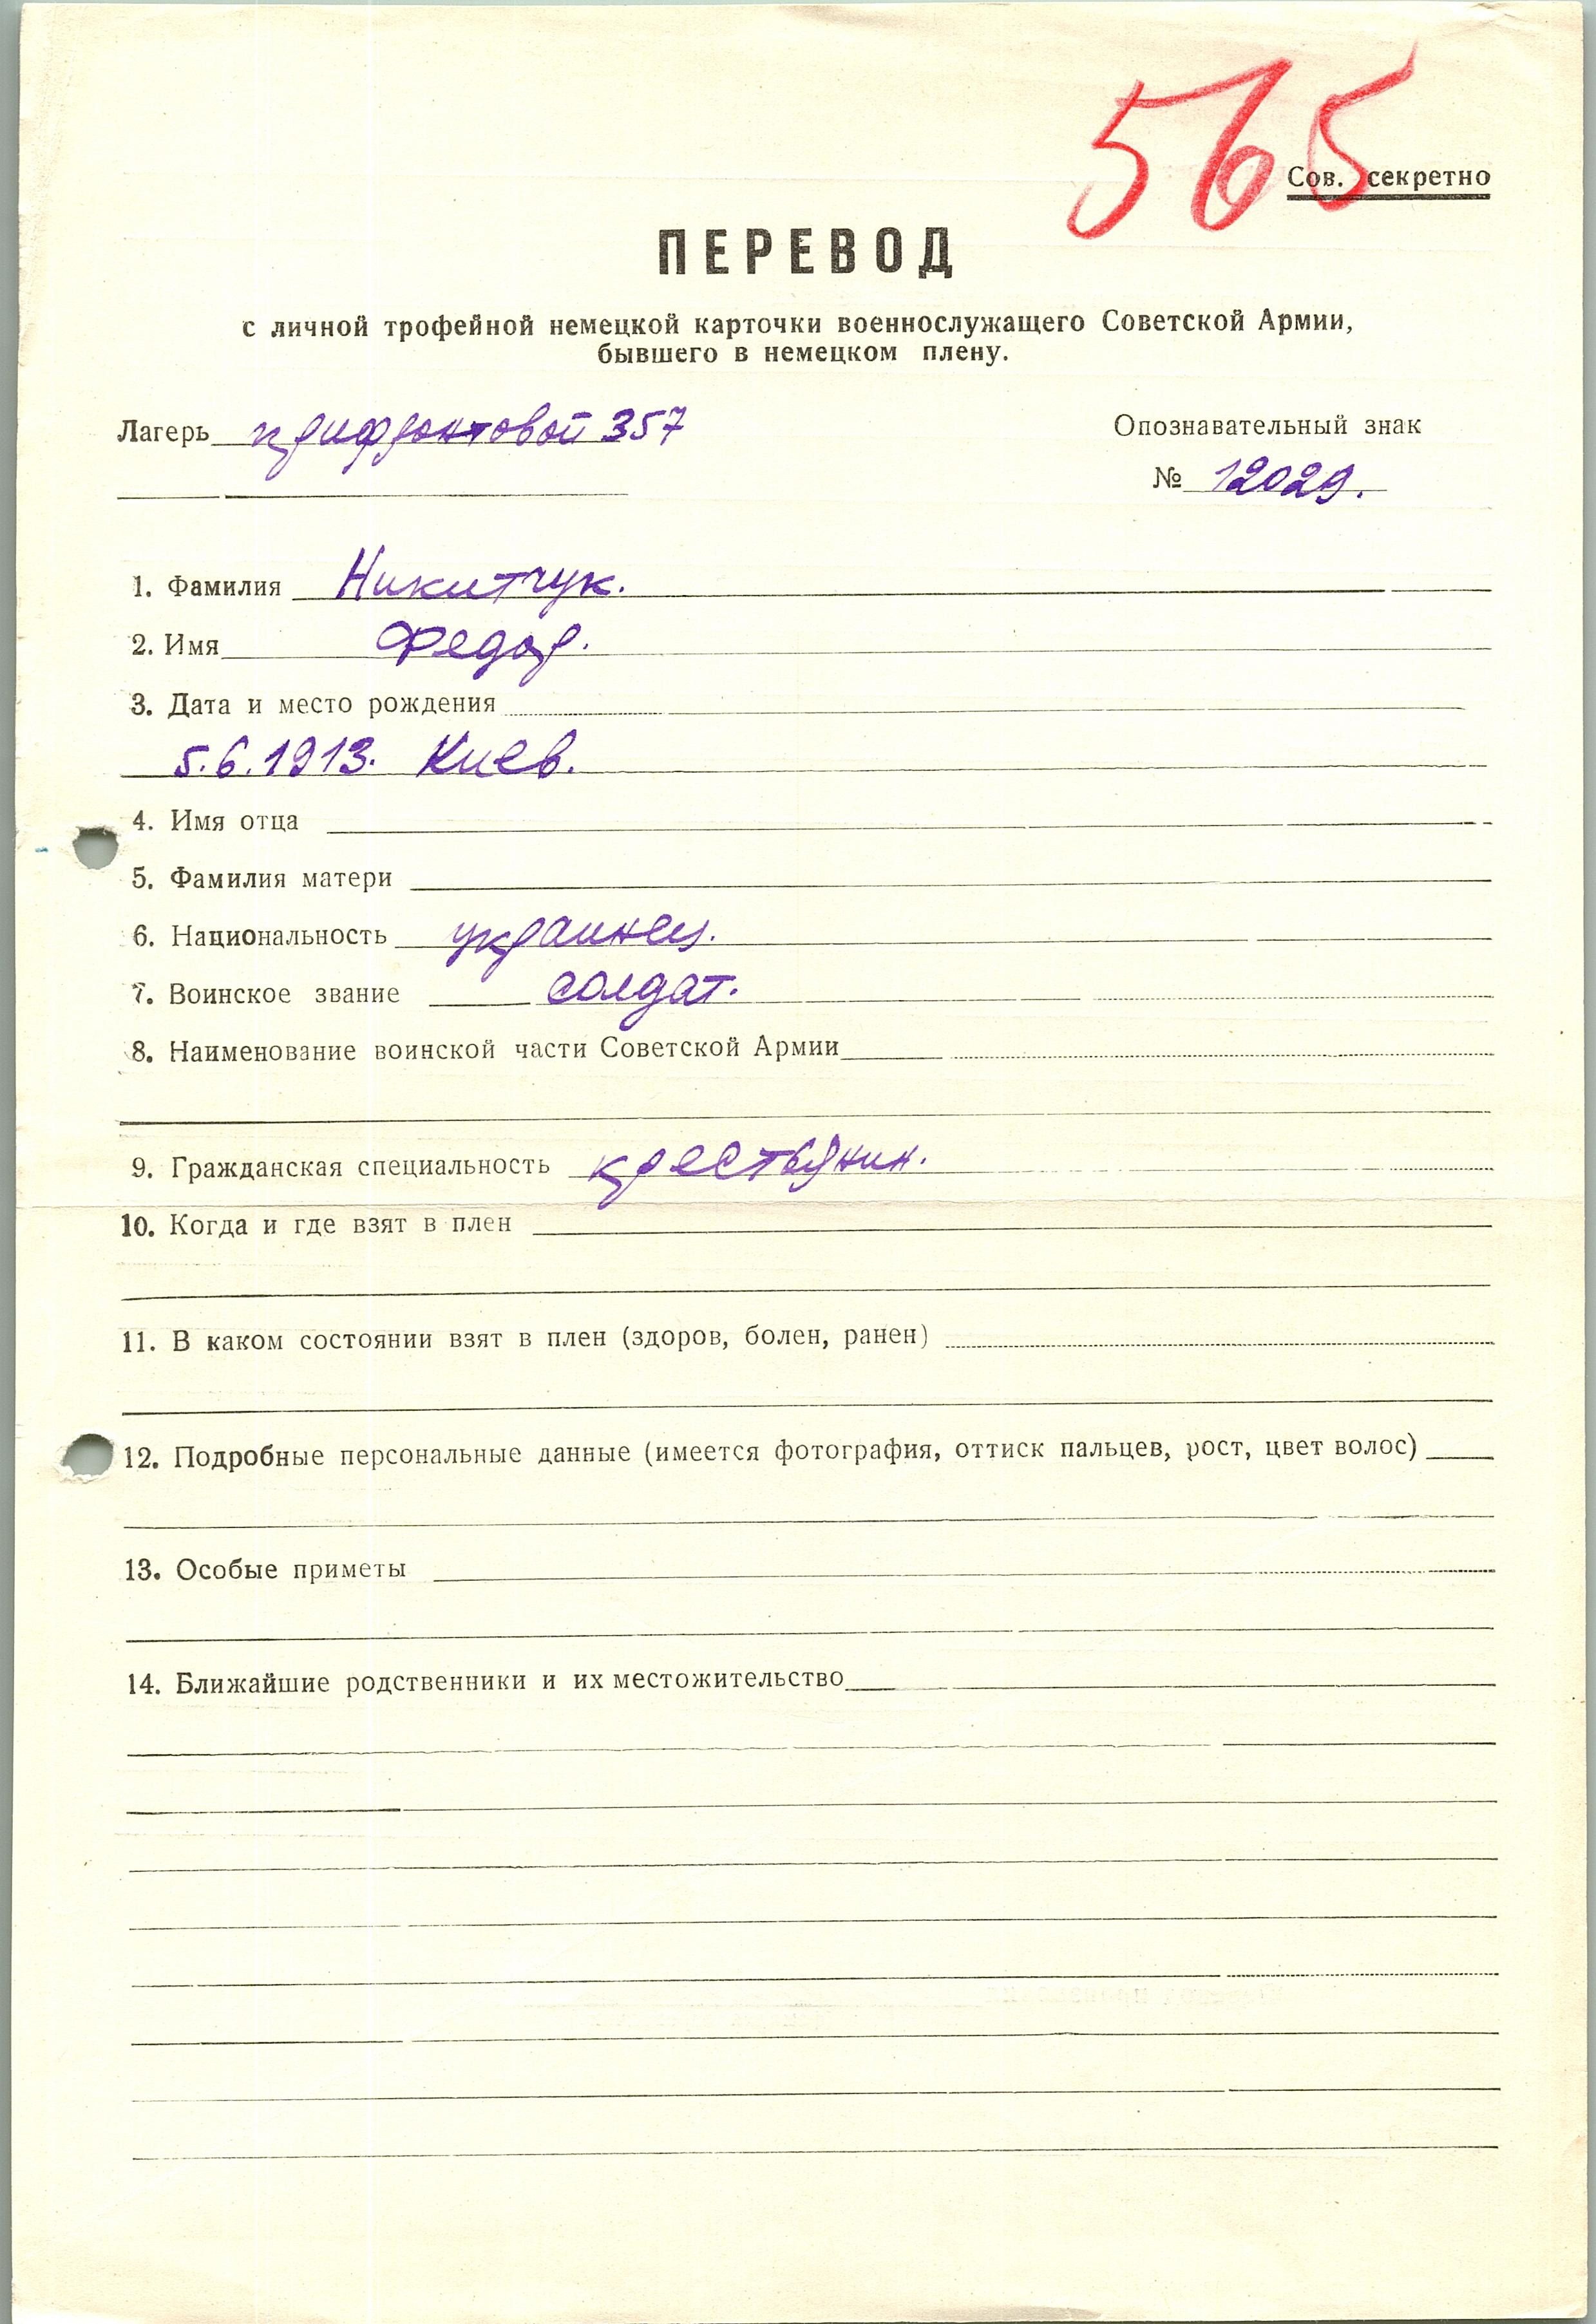 565
Сов. секретно
ПЕРЕВОД
с личной трофейной немецкой карточки военнослужащего Советской Армии,
бывшего в немецком плену.
Лагерь прифронтовой 357
Опознавательный знак
№ 12029.
1. Фамилия Никитчук.
2. Имя Федор.
3. Дата и место рождения
5.6.1913. Киев.
4. Имя отца
5. Фамилия матери
6. Национальность украинец.
7. Воинское звание солдат.
8. Наименование воинской части Советской Армии
9. Гражданская специальность крестьянин.
10. Когда и где взят в плен
11. В каком состоянии взят в плен (здоров, болен, ранен)
12. Подробные персональные данные (имеется фотография, оттиск пальцев, рост, цвет волос)
13. Особые приметы
14. Ближайшие родственники и их местожительство